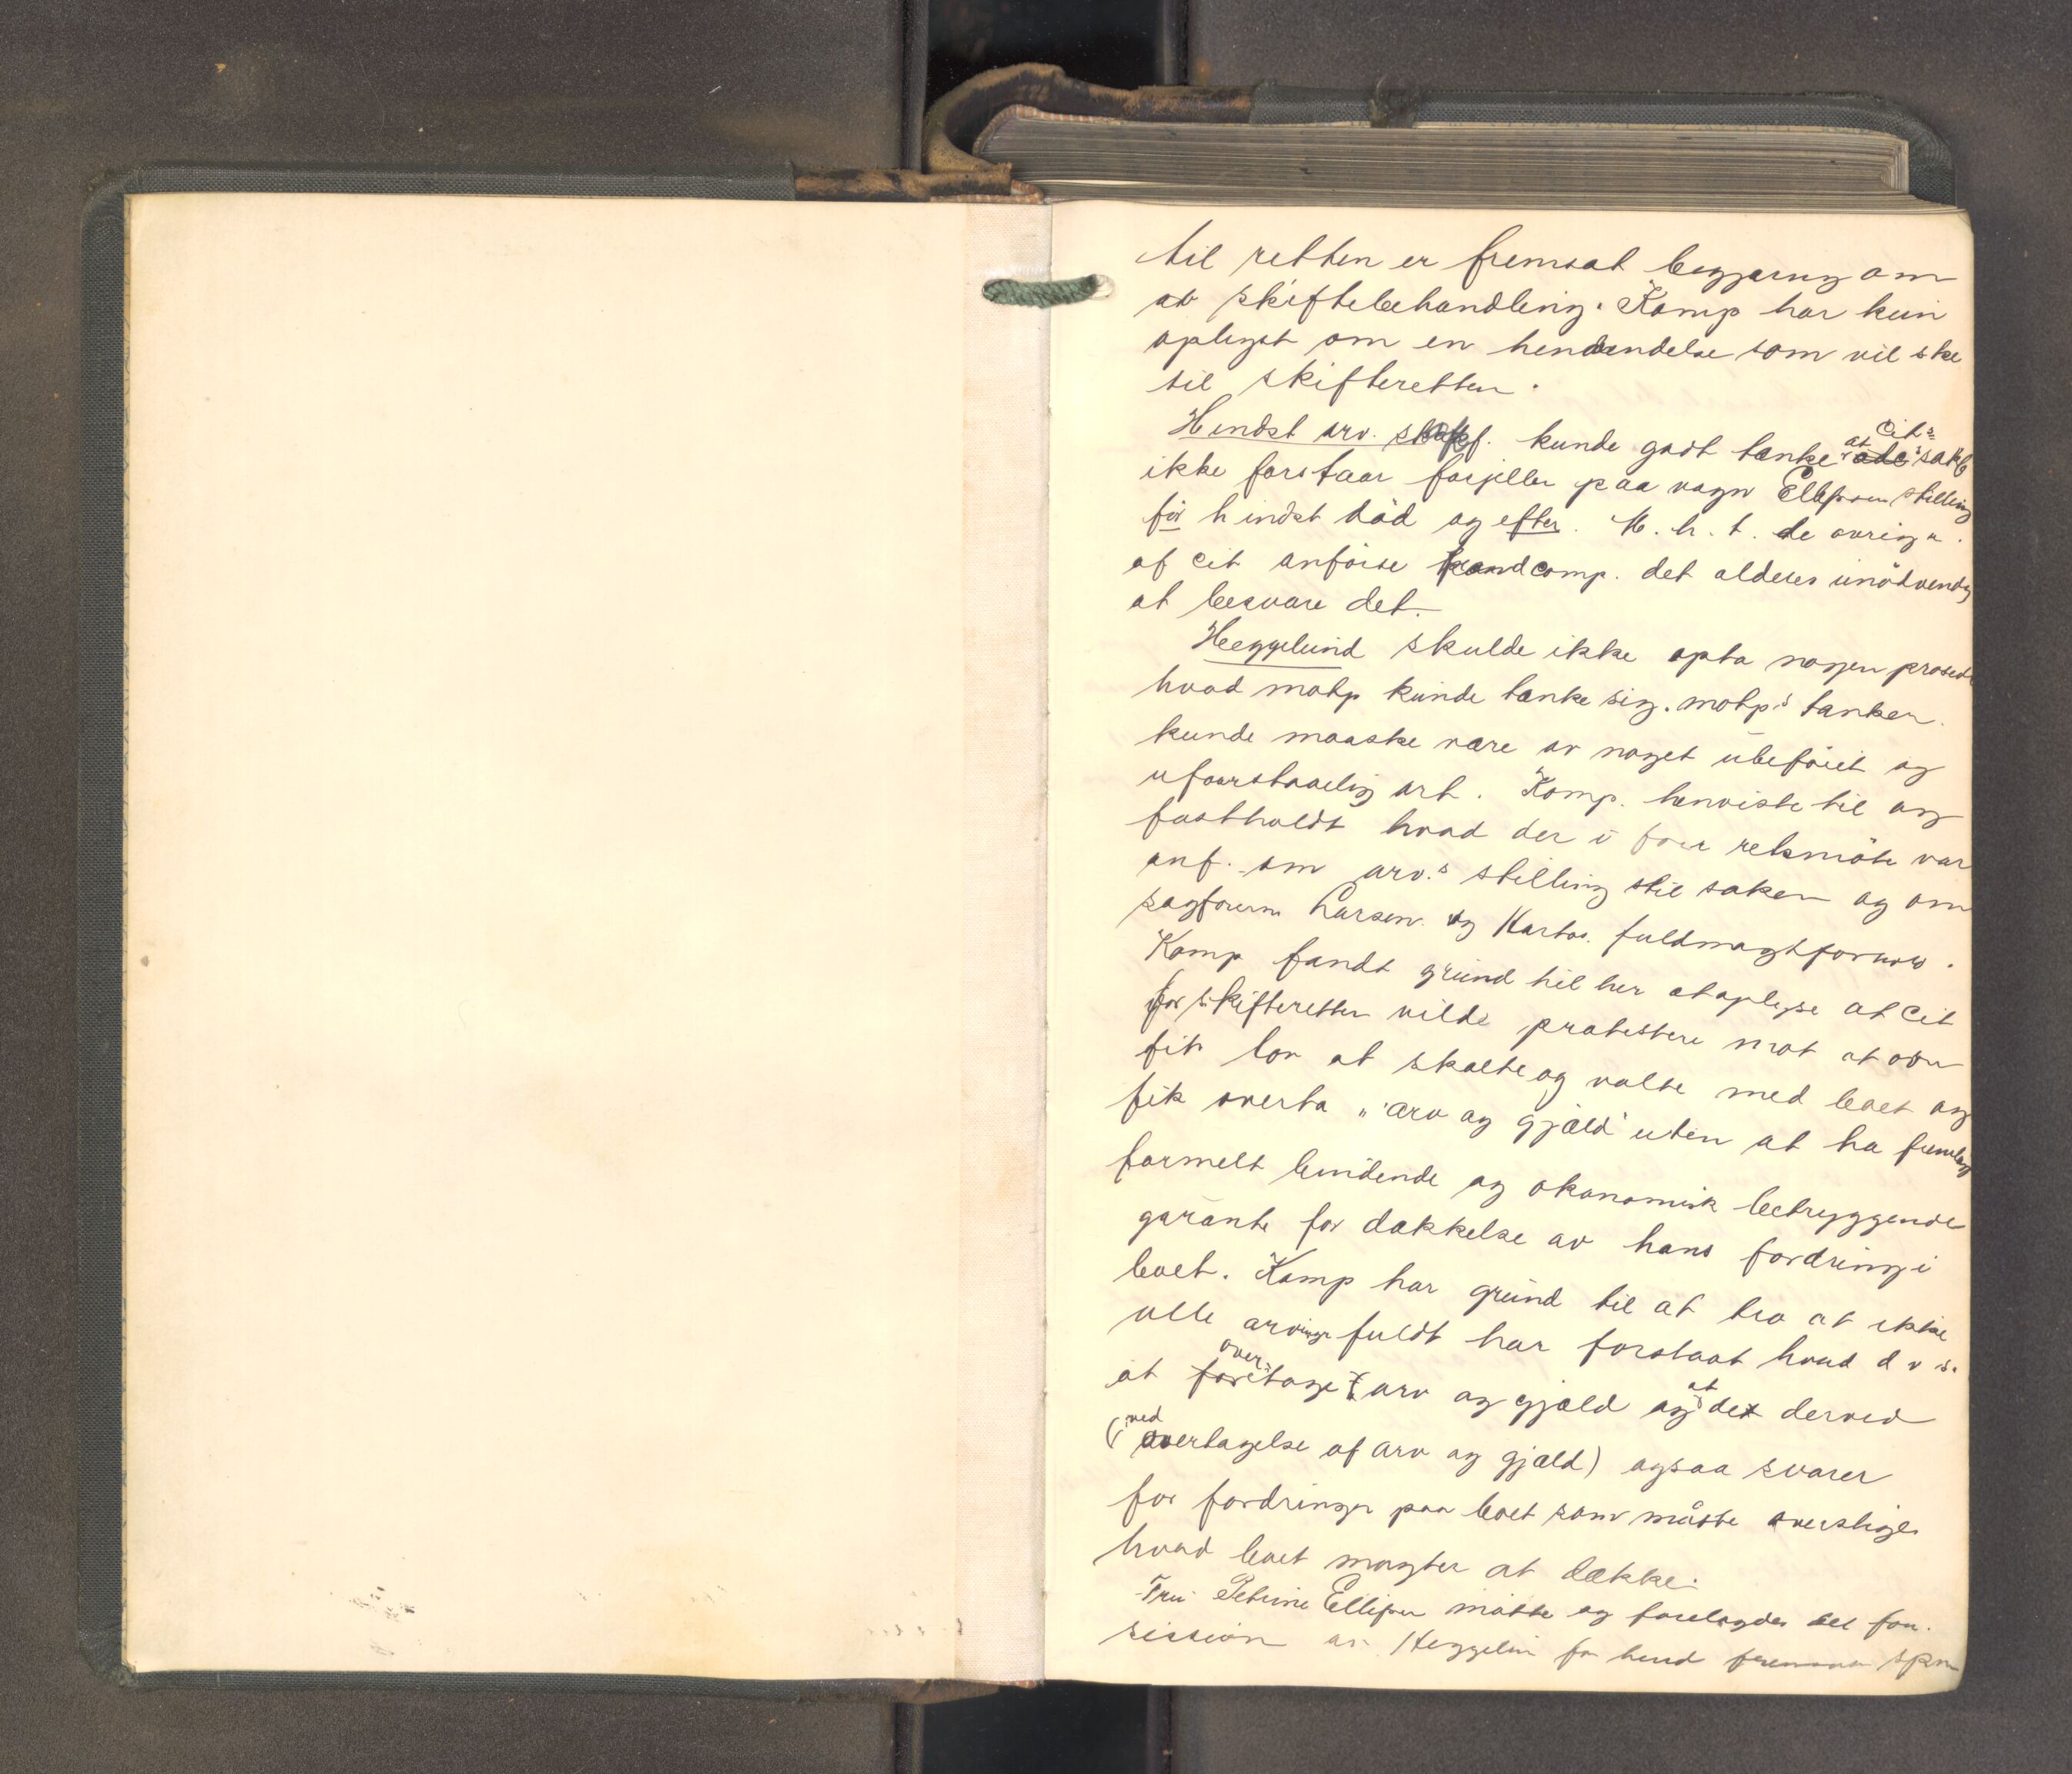 til retten er fremsat begjæring om
at skiftebehandling. Komp har kun
oplyst om en hendvendelse som vil ske
til skifteretten.
Hindst arv. sakf. kunde godt tænke at cit.s sakf
ikke forstaar forskjellen paa vogn Ellefsen stilling
før hindst död og efter. M. h. t. de øvrige
af cit anförte fandt comp. det aldeles unödvendig
at besvare det.
Heggelund skulde ikke opta nogen prosed
hvad motp kunde tænke sig. motp.s tanker
kunde maaske være av noget ubeföiet og
uforstaaelig art. Komp. henviste til og
fastholdt hvad der i forr retsmöte var
anf. om arv.s stilling til saken og om
sagförerne Larsen og Hartv. fuldmagtforhold.
Komp fandt grund til her at oplyse at cit
for skifteretten vilde protestere mot at arv
fik lov at skalte og valte med boet og
fik overta "arv og gjæld" uten at ha fremlagt
formelt bindende og økonomisk betryggende
garanti for dækkelse av hans fordring i
boet. Komp har grund til at tro at ikke
alle arvinger fuldt har forstaat hvad d v s.
at overtage arv og gjæld og at de derved
(ved overtagelse af arv og gjæld) ogsaa svarer
for fordringer paa boet som maatte overstige
hvad boet magter at dække.
Fru Petrine Ellefsen mötte og forelagdes det
av Heggelun for hend spm